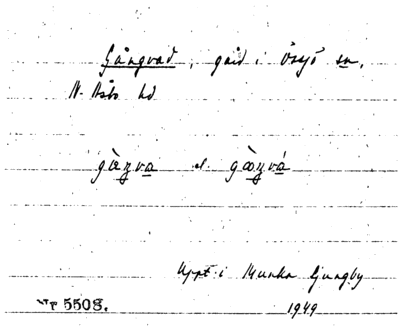 Gångvad, gård i Össjö sn,
N. Åsbo hd
gæ̀ŋva el. gæ̀ŋvá
Uppt. i Munka Ljungby
Nr 5508. 1949